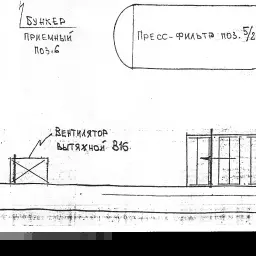 Бункер
приемный
поз.6
Пресс-фильтр поз. 5/2
Вентилятор
вытяжной В16